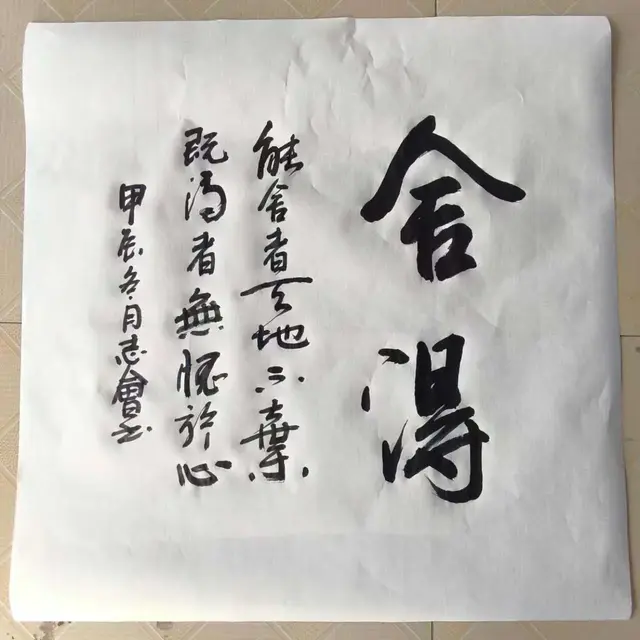 舍得
能舍者天地不弃
既得者無愧於心
甲辰冬月志會書